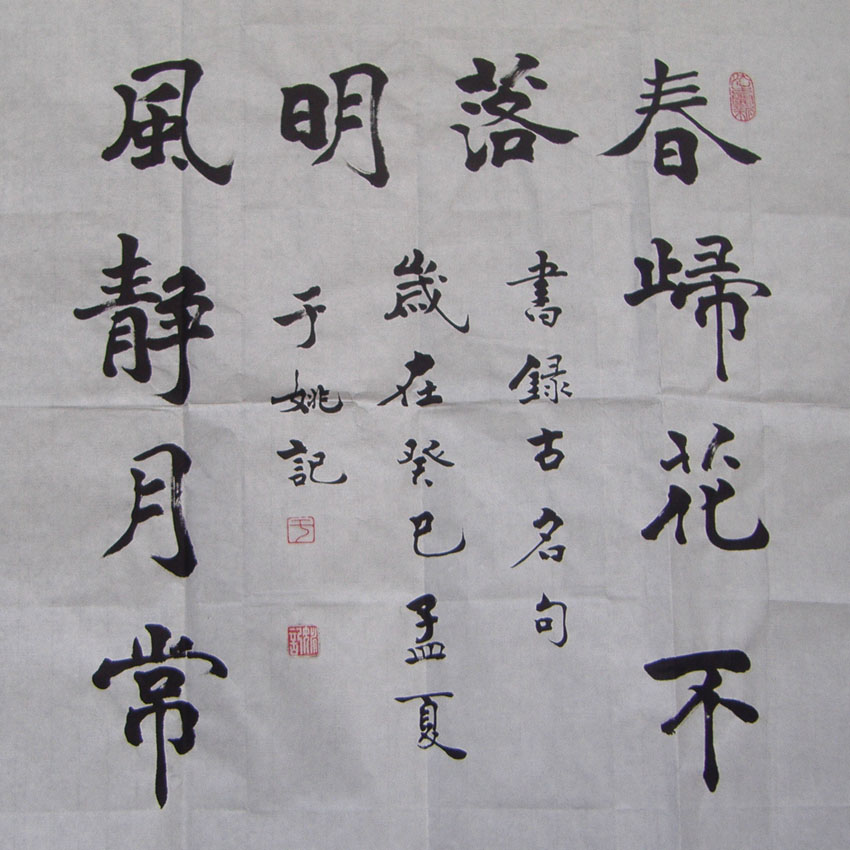 春歸花不
落
風靜月常
明
書録古名句
歲在癸巳孟夏
于姚記